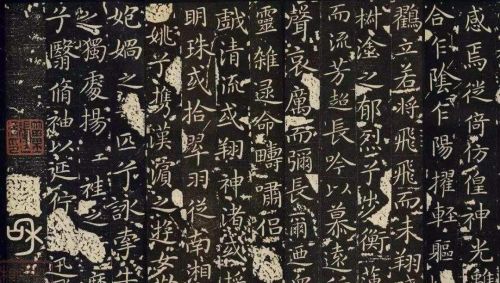 感焉徙倚彷徨神光離
合乍陰乍陽擢輕軀
鶴立若將飛飛而未翔
椒塗之郁烈兮步衡薄
而流芳超長吟以慕遠
聲哀厲而彌長爾迺
靈雜遝命疇嘯侶
戲清流或翔神渚或
明珠或拾翠羽從南湘
姚兮攜漢濱之遊女
妃媧之匹兮詠牽牛
之獨處揚袿之
兮翳脩袖以延佇迅